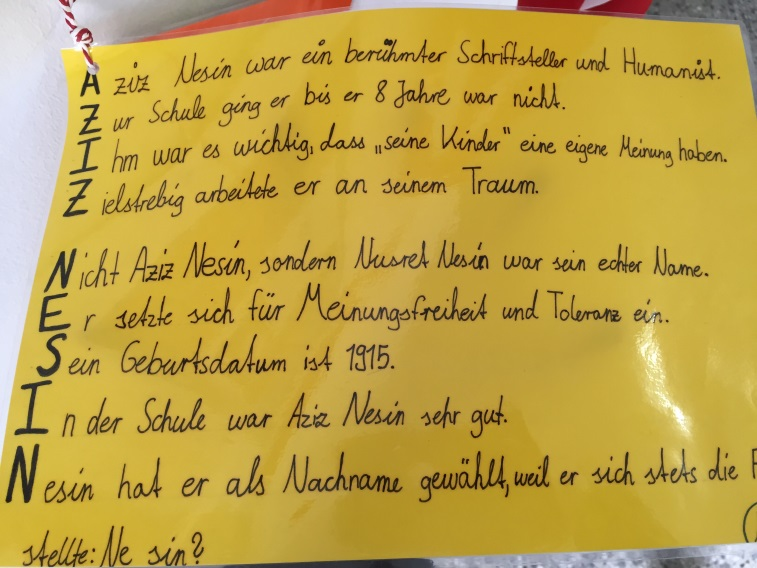 Aziz Nesin war ein berühmter Schriftsteller und Humanist.
Zur Schule ging er bis er 8 Jahre war nicht.
Ihm war es wichtig, dass „seine Kinder" eine eigene Meinung haben.
Zielstrebig arbeitete er an seinem Traum.
Nicht Aziz Nesin, sondern Nusret Nesin war sein echter Name.
Er setzte sich für Meinungsfreiheit und Toleranz ein.
Sein Geburtsdatum ist 1915.
In der Schule war Aziz Nesin sehr gut.
Nesin hat er als Nachname gewählt, weil er sich stets die
stellte: Ne sin?